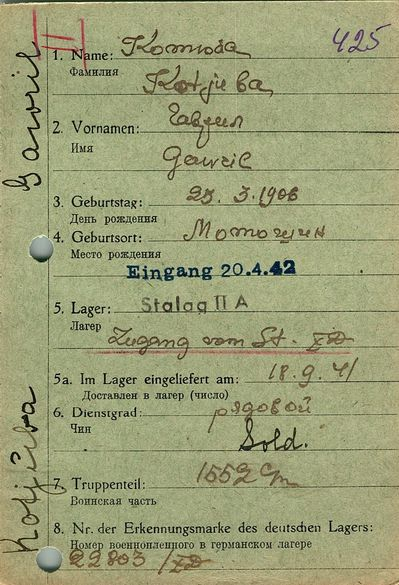 II
425
1. Name: Котьева
Фамилия
Kotjeba
2. Vornamen: Гаврил
Имя
Gawril
3. Geburtstag: 25. 3. 1906
День рождения
4. Geburtsort:
Место рождения
Eingang 20.4.42
5. Lager: Stalag II A
Лагерь
Zugang vom St. XD
5a. Im Lager eingeliefert am: 18.9.41
Доставлен в лагер (число)
6. Dienstgrad: рядовой
Чин
Sold.
7. Truppenteil: 1552
Воинская часть
8. Nr. der Erkennungsmarke des deutschen Lagers:
Номер военнопленного в германском лагере
22803 / XD
Kotjeba
Gawril